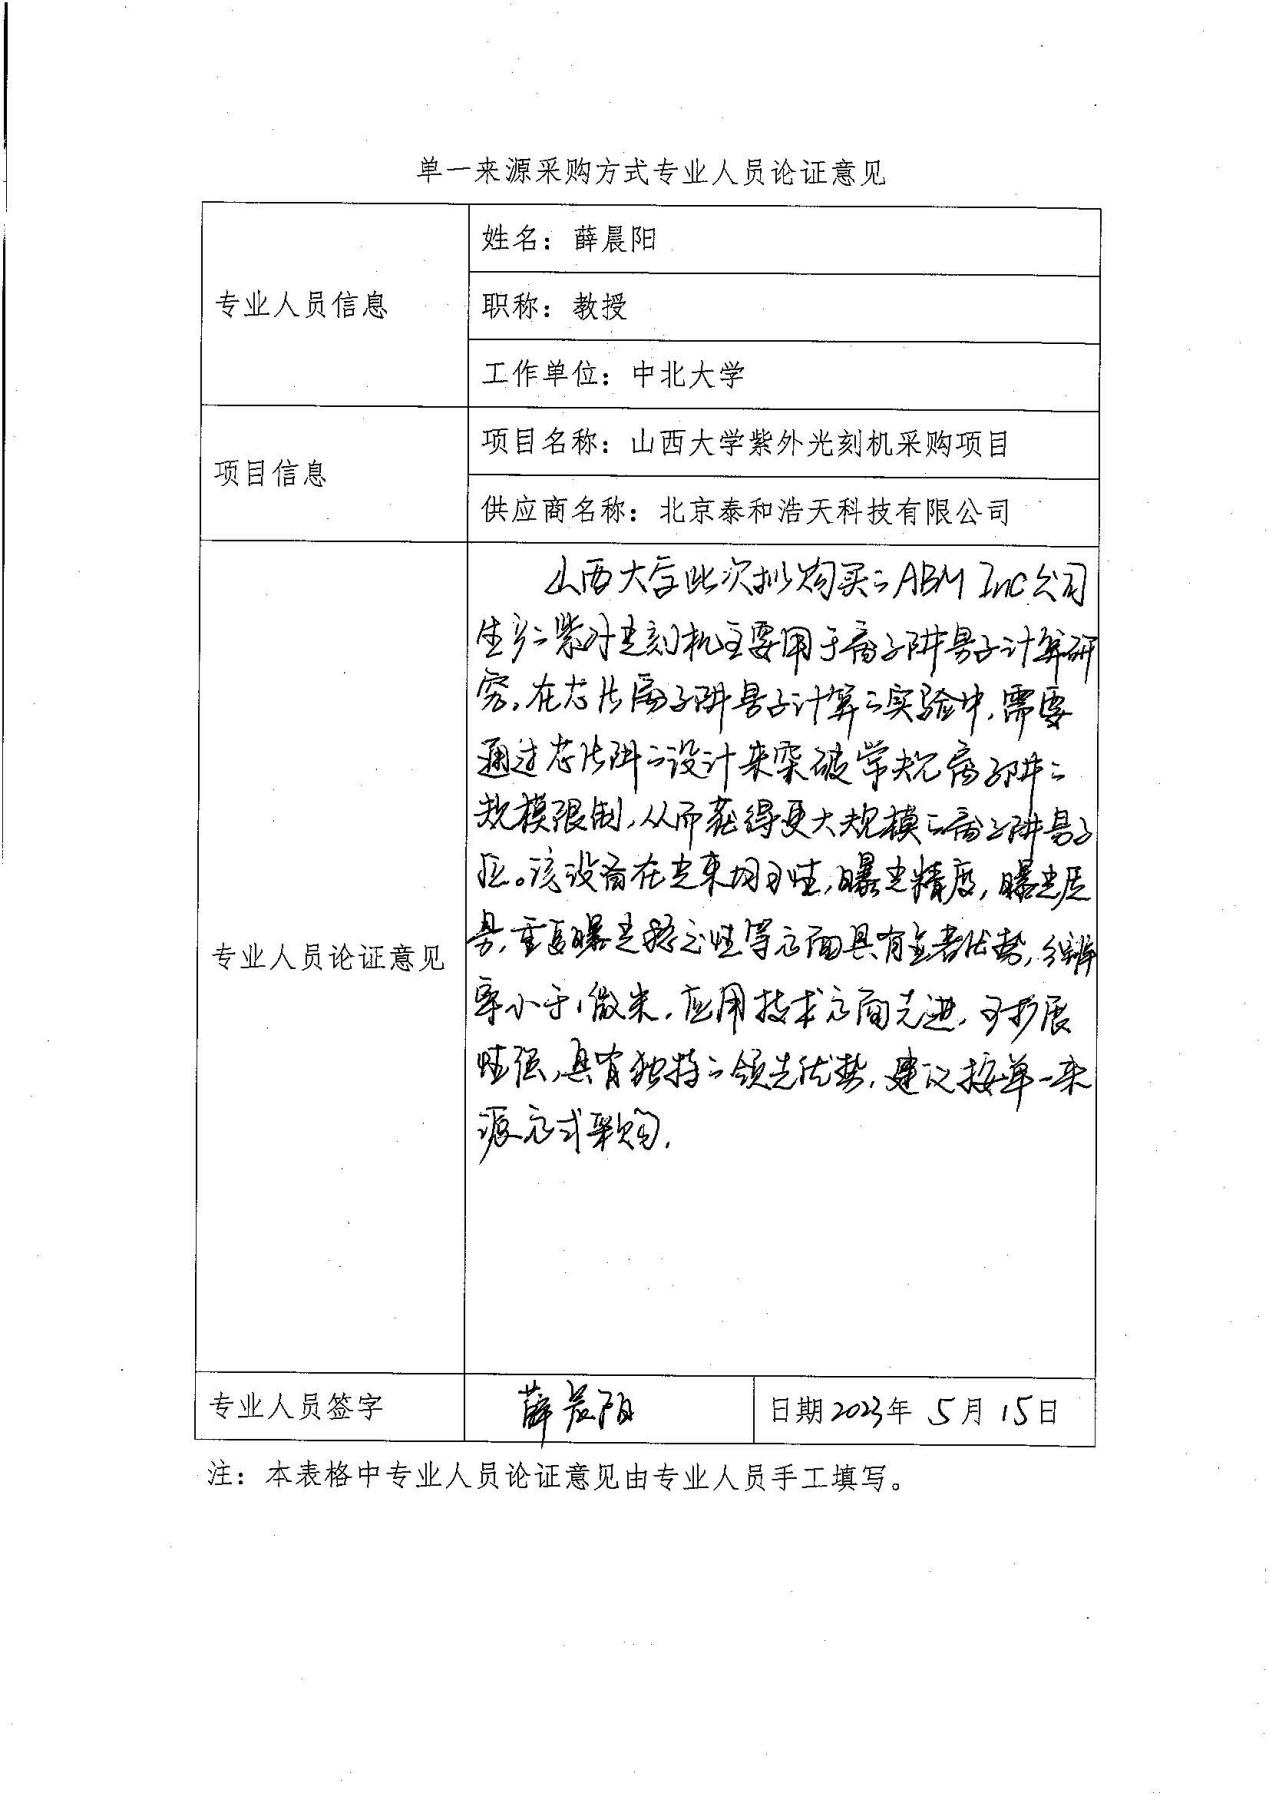 单一来源采购方式专业人员论证意见
专业人员信息
姓名：薛晨阳
职称：教授
工作单位：中北大学
项目信息
项目名称：山西大学紫外光刻机采购项目
供应商名称：北京泰和浩天科技有限公司
专业人员论证意见
山西大学此次拟购买的ABM Inc公司
生产的紫外光刻机主要用于离子阱量子计算研
究。在芯片离子阱量子计算的实验中，需要
通过芯片阱的设计来突破常规离子阱的
规模限制，从而获得更大规模的离子阱量子
。该设备在光束均匀性，曝光精度，曝光质
量，重复曝光稳定性等方面具有显著优势，分辨
率小于1微米，应用技术方面先进，可扩展
性强，具有独特的领先优势，建议按单一来
源方式采购。
专业人员签字
薛晨阳
日期2023年 5月 15日
注：本表格中专业人员论证意见由专业人员手工填写。